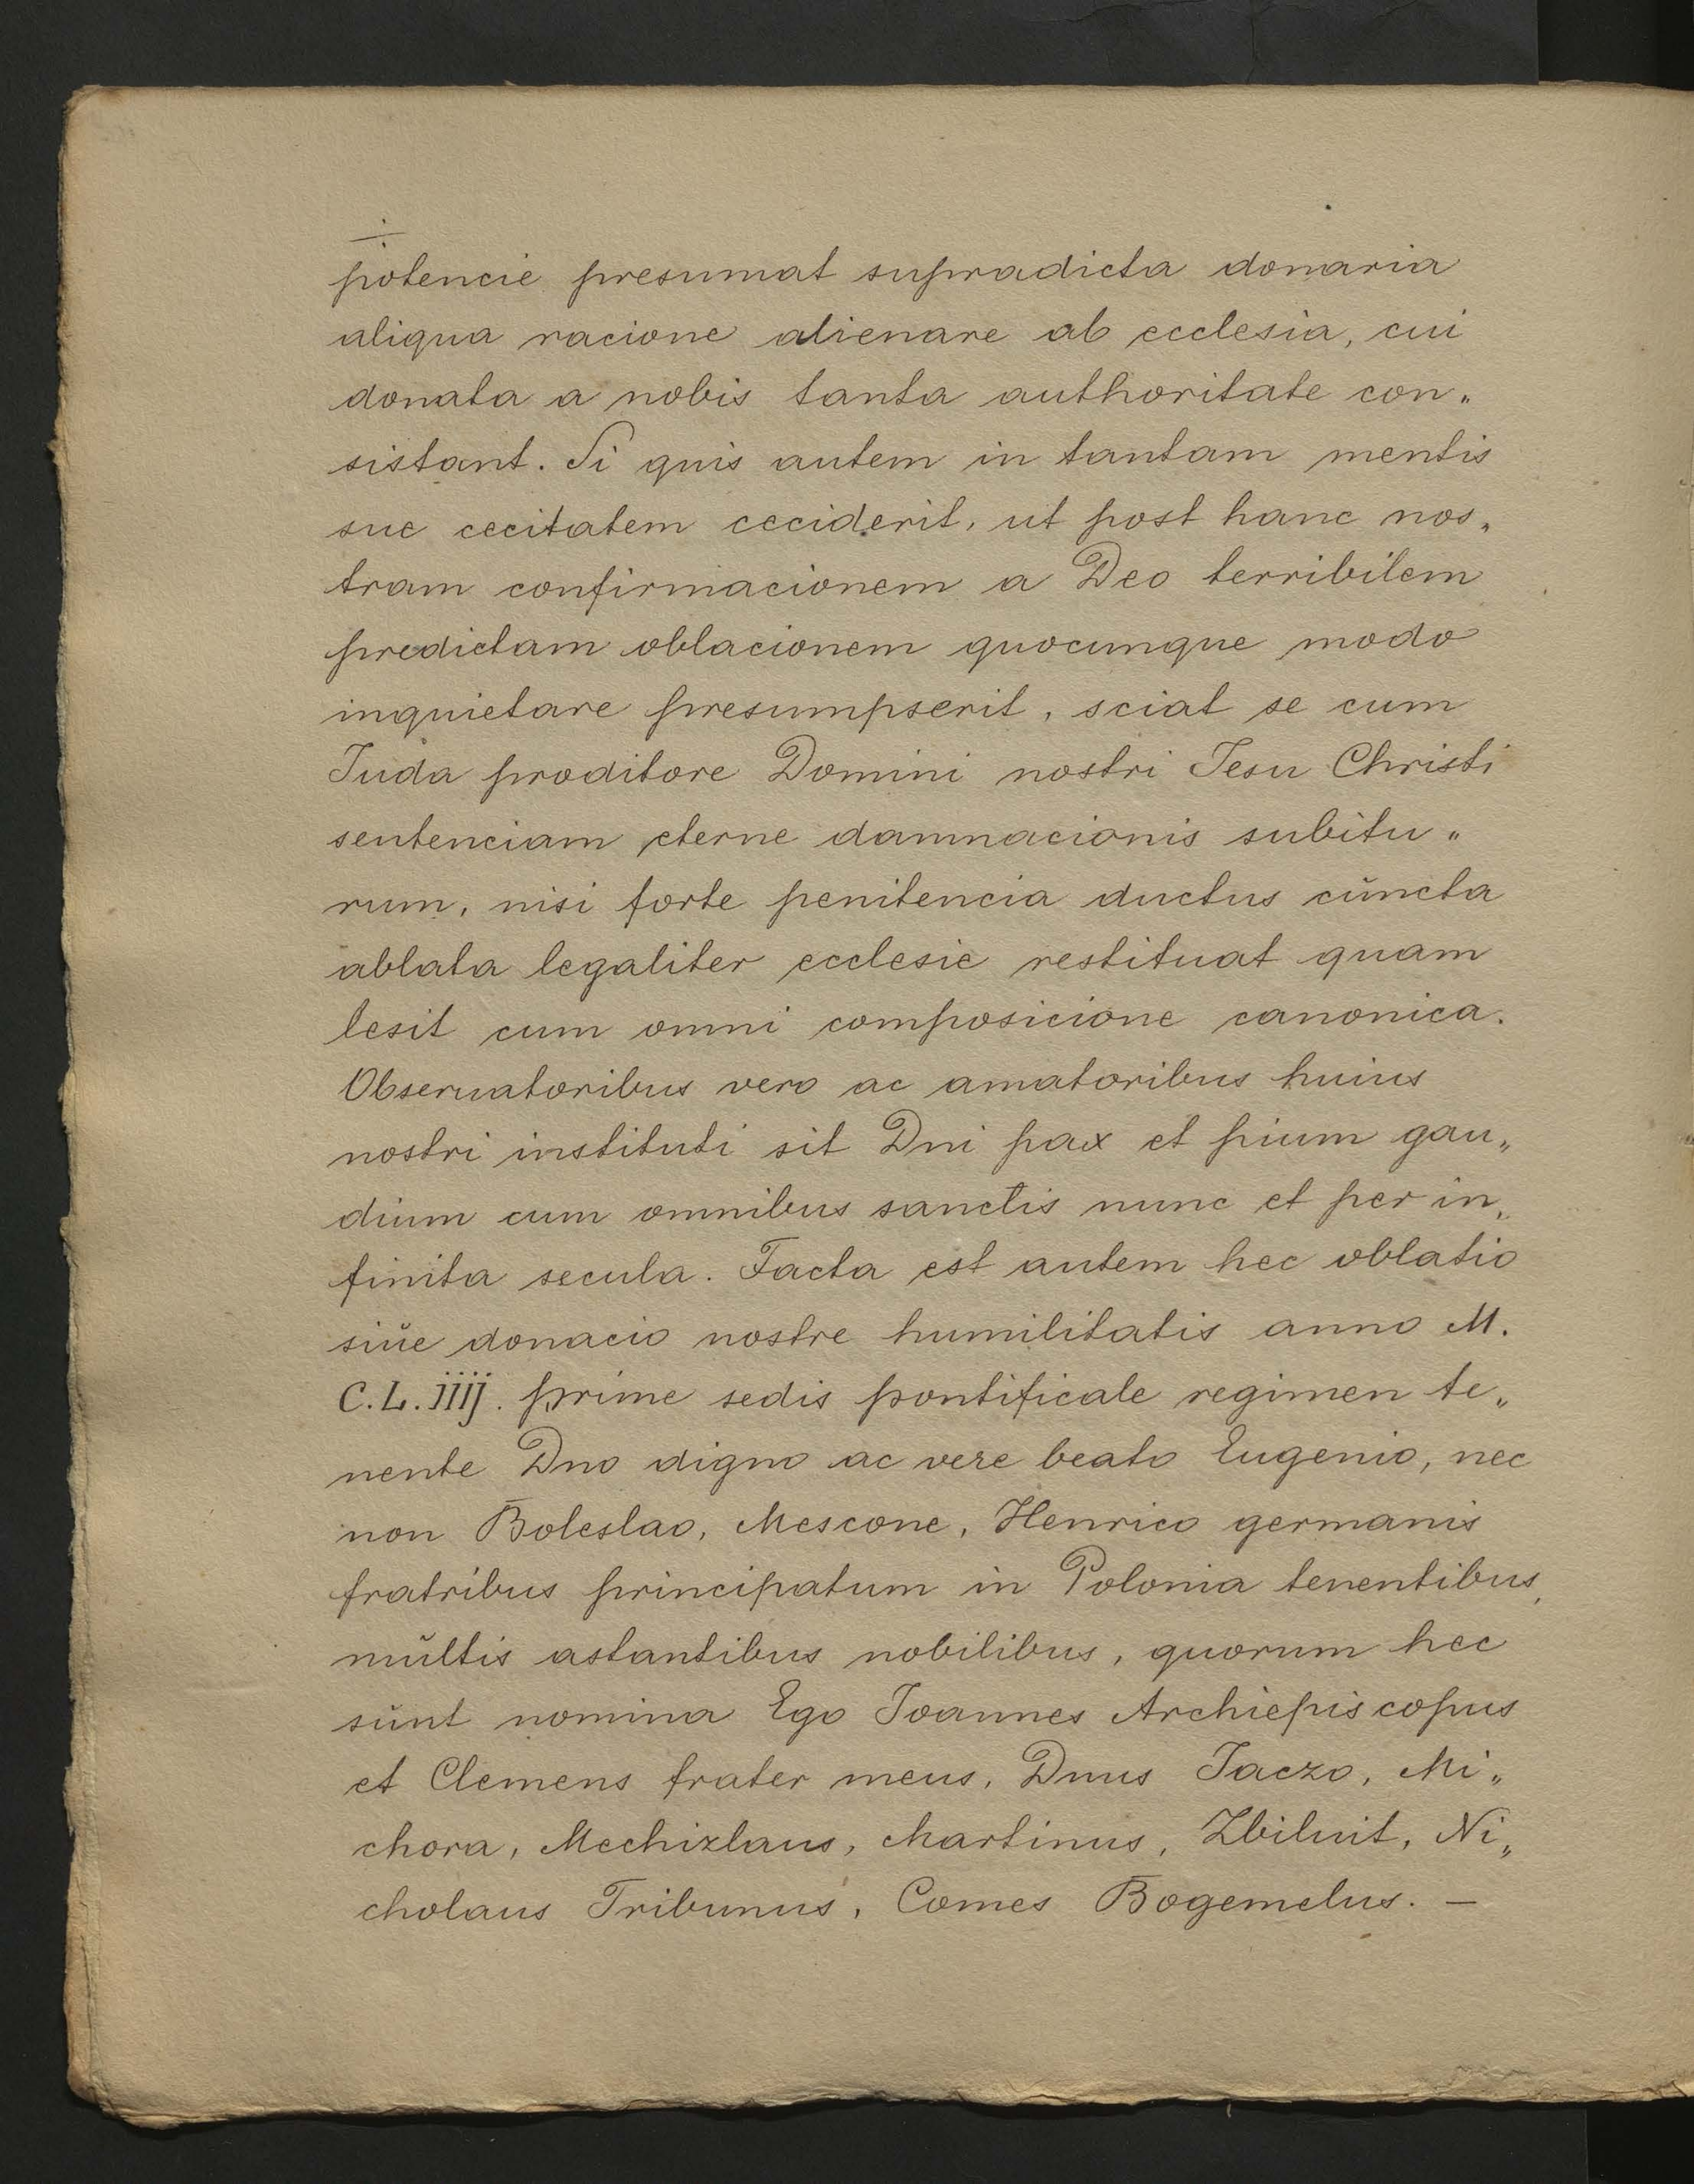 potencie presumat supradicta donaria
aliqua racione alienare ab ecclesia, cui
donata a nobis tanta authoritate con„
sistant. Si quis autem in tantam mentis
sue cecitatem ceciderit, ut post hanc nos„
tram confirmacionem a Deo terribilem
predictam oblacionem quocumque modo
inquietare presumpserit, sciat se cum
Juda proditore Domini nostri Jesu Christi
sentenciam eterne damnacionis subitu„
rum, nisi forte penitencia ductus cŭncta
ablata legaliter ecclesie restituat quam
lesit cum omni composicione canonica.
Obseruatoribus vero ac amatoribus huius
nostri instituti sit Dni pax et pium gau„
dium cum omnibus sanctis nunc et per in„
finita secula. Facta est autem hec oblatio
siŭe donacio nostre humilitatis anno M.
C.L.iiij. prime sedis pontificale regimen te„
nente Dno digno ac vere beato Eugenio, nec
non Boleslao, Mescone, Henrico germanis
fratribus principatum in Polonia tenentibus,
mŭltis astantibus nobilibus, quorum hec
sŭnt nomina Ego Joannes Archiepiscopus
et Clemens frater meus, Dnus Jaczo, Mi„
chora, Mechizlaus, Martinus, Zbiluit, Ni„
cholaus Tribunus, Comes Bogemelus. —